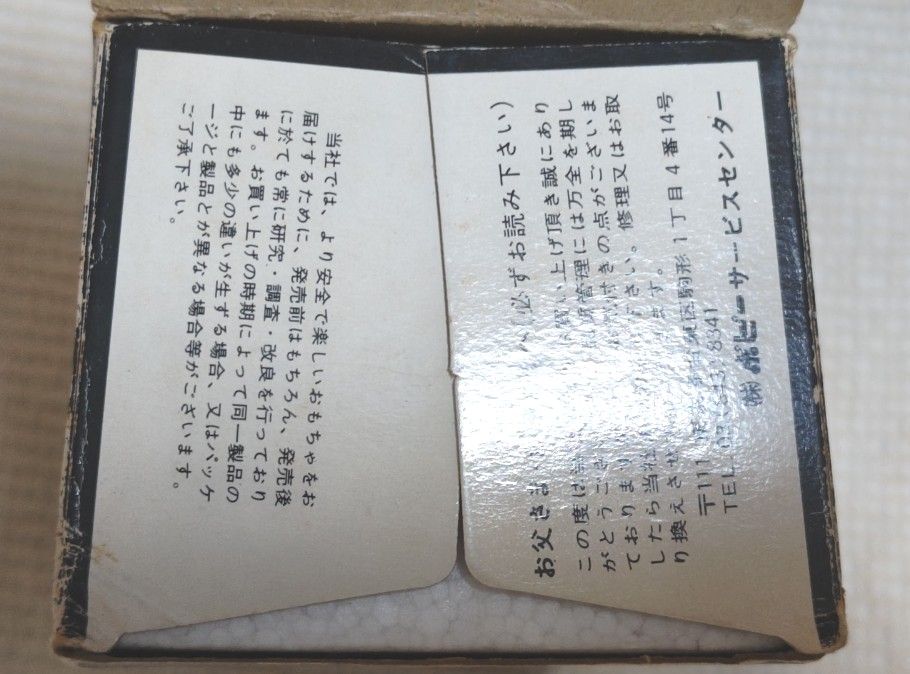 お父さま (必ずお読み下さい)
この度は 買い上げ頂き誠にあり
がとうござ 管理には万全を期し
ておりま 気付きの点がございま
したら当社 さい。修理又はお取
り換えさせ ます。
〒111 東 区駒形1丁目4番14号
TEL. 03 8341
㈱ポピーサービスセンター
当社では、より安全で楽しいおもちゃをお
届けするために、発売前はもちろん、発売後
に於ても常に研究・調査・改良を行っており
ます。お買い上げの時期によって同一製品の
中にも多少の違いが生ずる場合、又はパッケ
ージと製品とが異なる場合等がございます。
ご了承下さい。